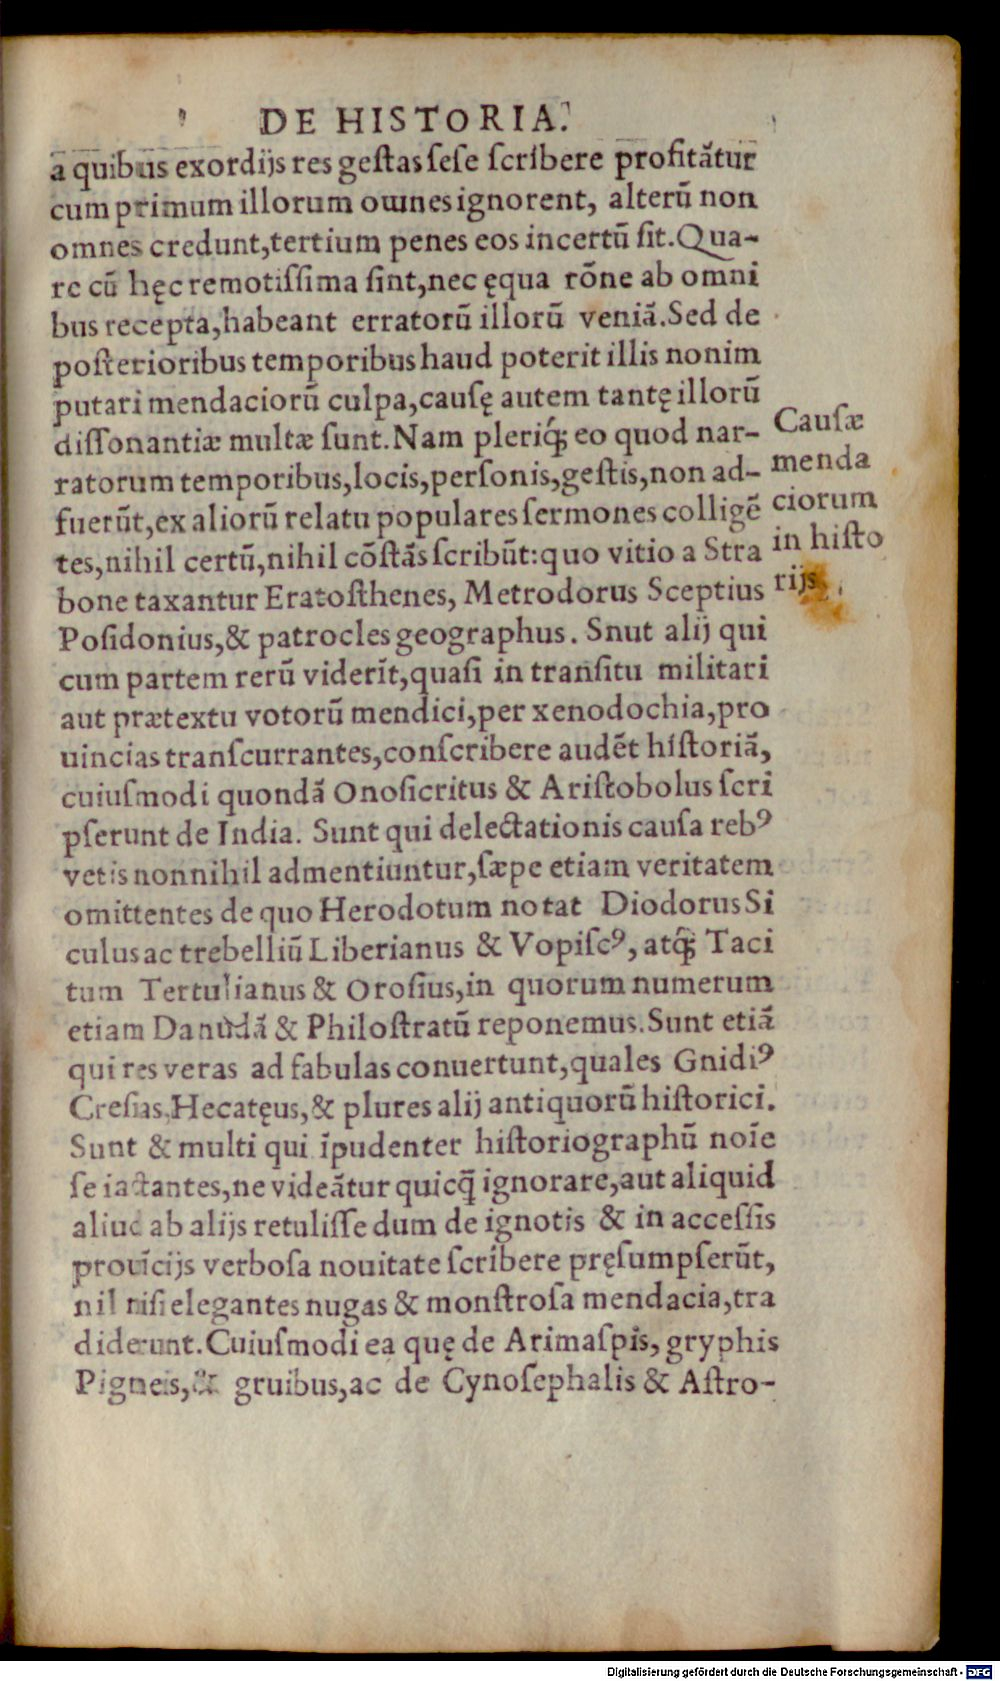 DE HISTORIA.
a quibus exordijs res gestas sese scribere profitãtur
cum primum illorum ownes ignorent, alterũ non
omnes credunt,tertium penes eos incertũ sit.Qua-
re cũ hęc remotissima sint,nec ęqua rõne ab omni
bus recepta,habeant erratorũ illorũ veniã.Sed de
posterioribus temporibus haud poterit illis nonim
putari mendaciorũ culpa,causę autem tantę illorũ
dissonantiæ multæ sunt.Nam pleriq́; eo quod nar-
ratorum temporibus,locis,personis,gestis,non ad-
fuerũt,ex aliorũ relatu populares sermones colligẽ
tes,nihil certũ,nihil cõstãs scribũt:quo vitio a Stra
bone taxantur Eratosthenes, Metrodorus Sceptius
Posidonius,& patrocles geographus. Snut alij qui
cum partem rerũ viderĩt,quasi in transitu militari
aut prætextu votorũ mendici,per xenodochia,pro
uincias transcurrantes,conscribere audẽt historiã,
cuiusmodi quondã Onosicritus & Aristobolus scri
pserunt de India. Sunt qui delectationis causa rebꝰ
vetis nonnihil admentiuntur,sæpe etiam veritatem
omittentes de quo Herodotum notat Diodorus Si
culus ac trebelliũ Liberianus & Vopiscꝰ, atq́; Taci
tum Tertulianus & Orosius,in quorum numerum
etiam Danudã & Philostratũ reponemus.Sunt etiã
qui res veras ad fabulas conuertunt,quales Gnidiꝰ
Cresias,Hecatęus,& plures alij antiquorũ historici.
Sunt & multi qui ĩpudenter historiographũ noĩe
se iactantes,ne videãtur quicq̃ ignorare,aut aliquid
aliud ab alijs retulisse dum de ignotis & in accessis
prouĩcijs verbosa nouitate scribere pręsumpserũt,
nil nisi elegantes nugas & monstrosa mendacia,tra
diderunt.Cuiusmodi ea quę de Arimaspis, gryphis
Pigneis,& gruibus,ac de Cynosephalis & Astro-
Causæ
menda
ciorum
in histo
rijs.
Digitalisierung gefördert durch die Deutsche Forschungsgemeinschaft - DFG